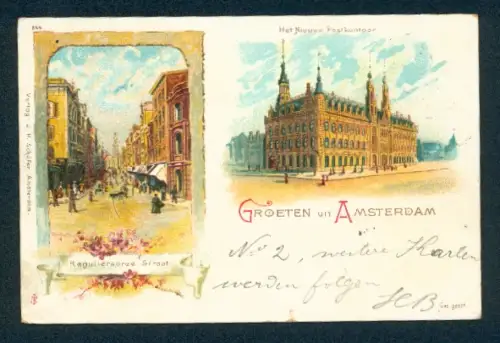 244
Het Nieuwe Postkantoor
Verlag J. H. Schaefer, Amsterdam.
GROETEN uit AMSTERDAM
Regulierbree Straat
No 2, weitere Karten
werden folgen
HB